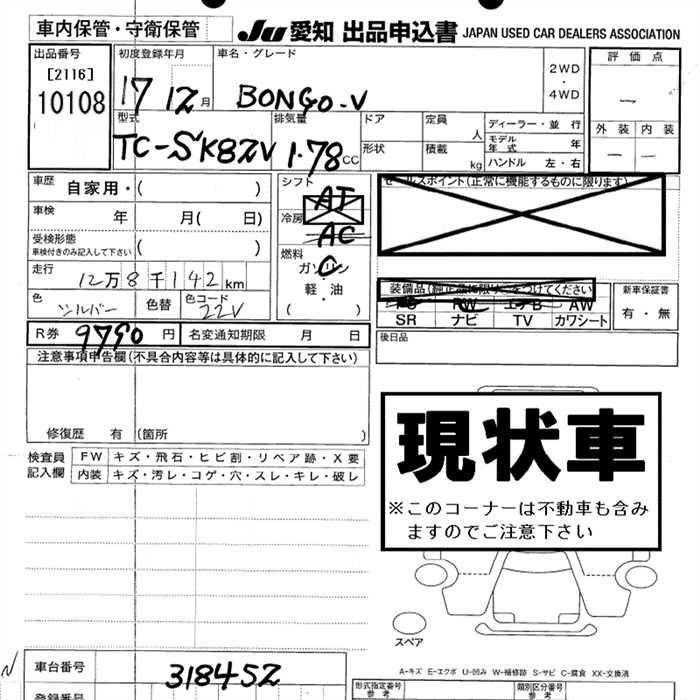 車内保管・守衛保管 Ju 愛知 出品申込書 JAPAN USED CAR DEALERS ASSOCIATION
出品番号 初度登録年月 車名・グレード 評価点
[2116] 2WD・4WD
10108 17 12月 BONGO-V —
型式 排気量 ドア 定員 人 ディーラー・並行 外装 内装
モデル年式 年
TC-SK82V 1.78CC 形状 積載 kg ハンドル 左・右 — —
車歴 自家用・( ) シフト セールスポイント(正常に機能するものに限ります)
AT
車検 年 月( 日) 冷房
AC
受検形態 ( )
車検付きのみ記入して下さい
燃料
走行 12万8千142km ガソリン
軽・油 装備品(純正品に限り○をつけてください) 新車保証書
色 シルバー 色替 色コード 22V ( ) PS PW エアB AW 有・無
SR ナビ TV カワシート
R券 9790円 名変通知期限 月 日 後日品
注意事項申告欄(不具合内容等は具体的に記入して下さい)
修復歴 有 (箇所 )
現状車
※このコーナーは不動車も含み
ますのでご注意下さい
検査員 FW キズ・飛石・ヒビ割・リペア跡・X要
記入欄 内装 キズ・汚レ・コゲ・穴・スレ・キレ・破レ
スペア
A-キズ E-エクボ U-凹み W-補修跡 S-サビ C-腐食 XX-交換済
N 車台番号 318452
登録番号 形式指定番号 参考 類別区分番号 参考